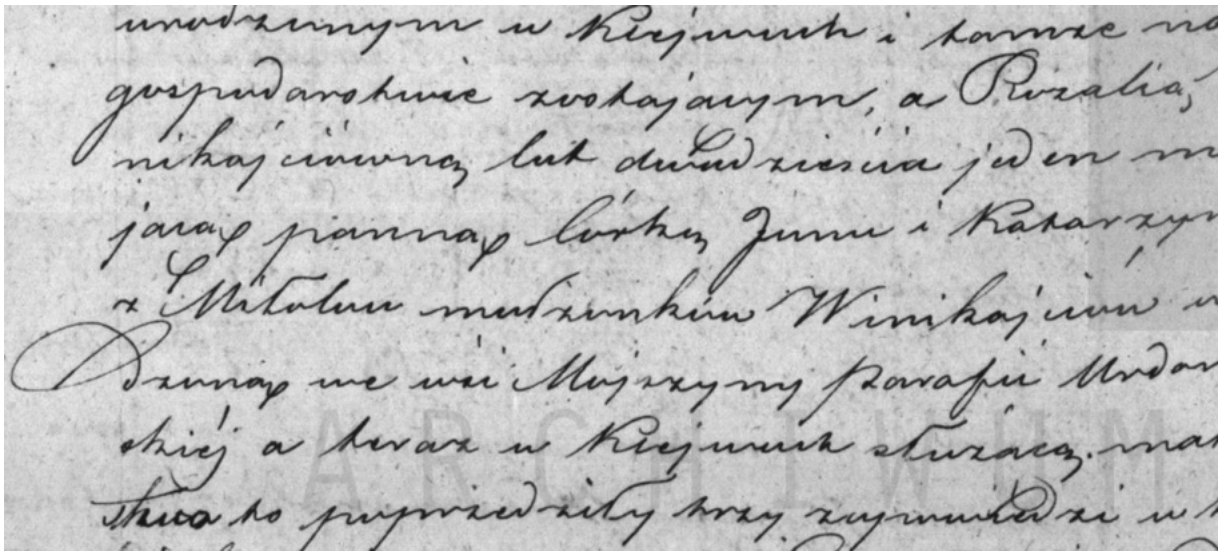 urodzonym w Kiejwach i tamże na
gospodarstwie zostającym, a Rozalią
nikajciówną lat dwadzieścia jeden m
jącą panną córką Jana i Katarzyn
z Mitołów małżonków Winikajciów u
dzoną we wsi Mojszyny Parafii Urdom
skiéj a teraz w Kiejwach służącą. mał
stwo to poprzedziły trzy zapowiedzi w
ARCHIWUM